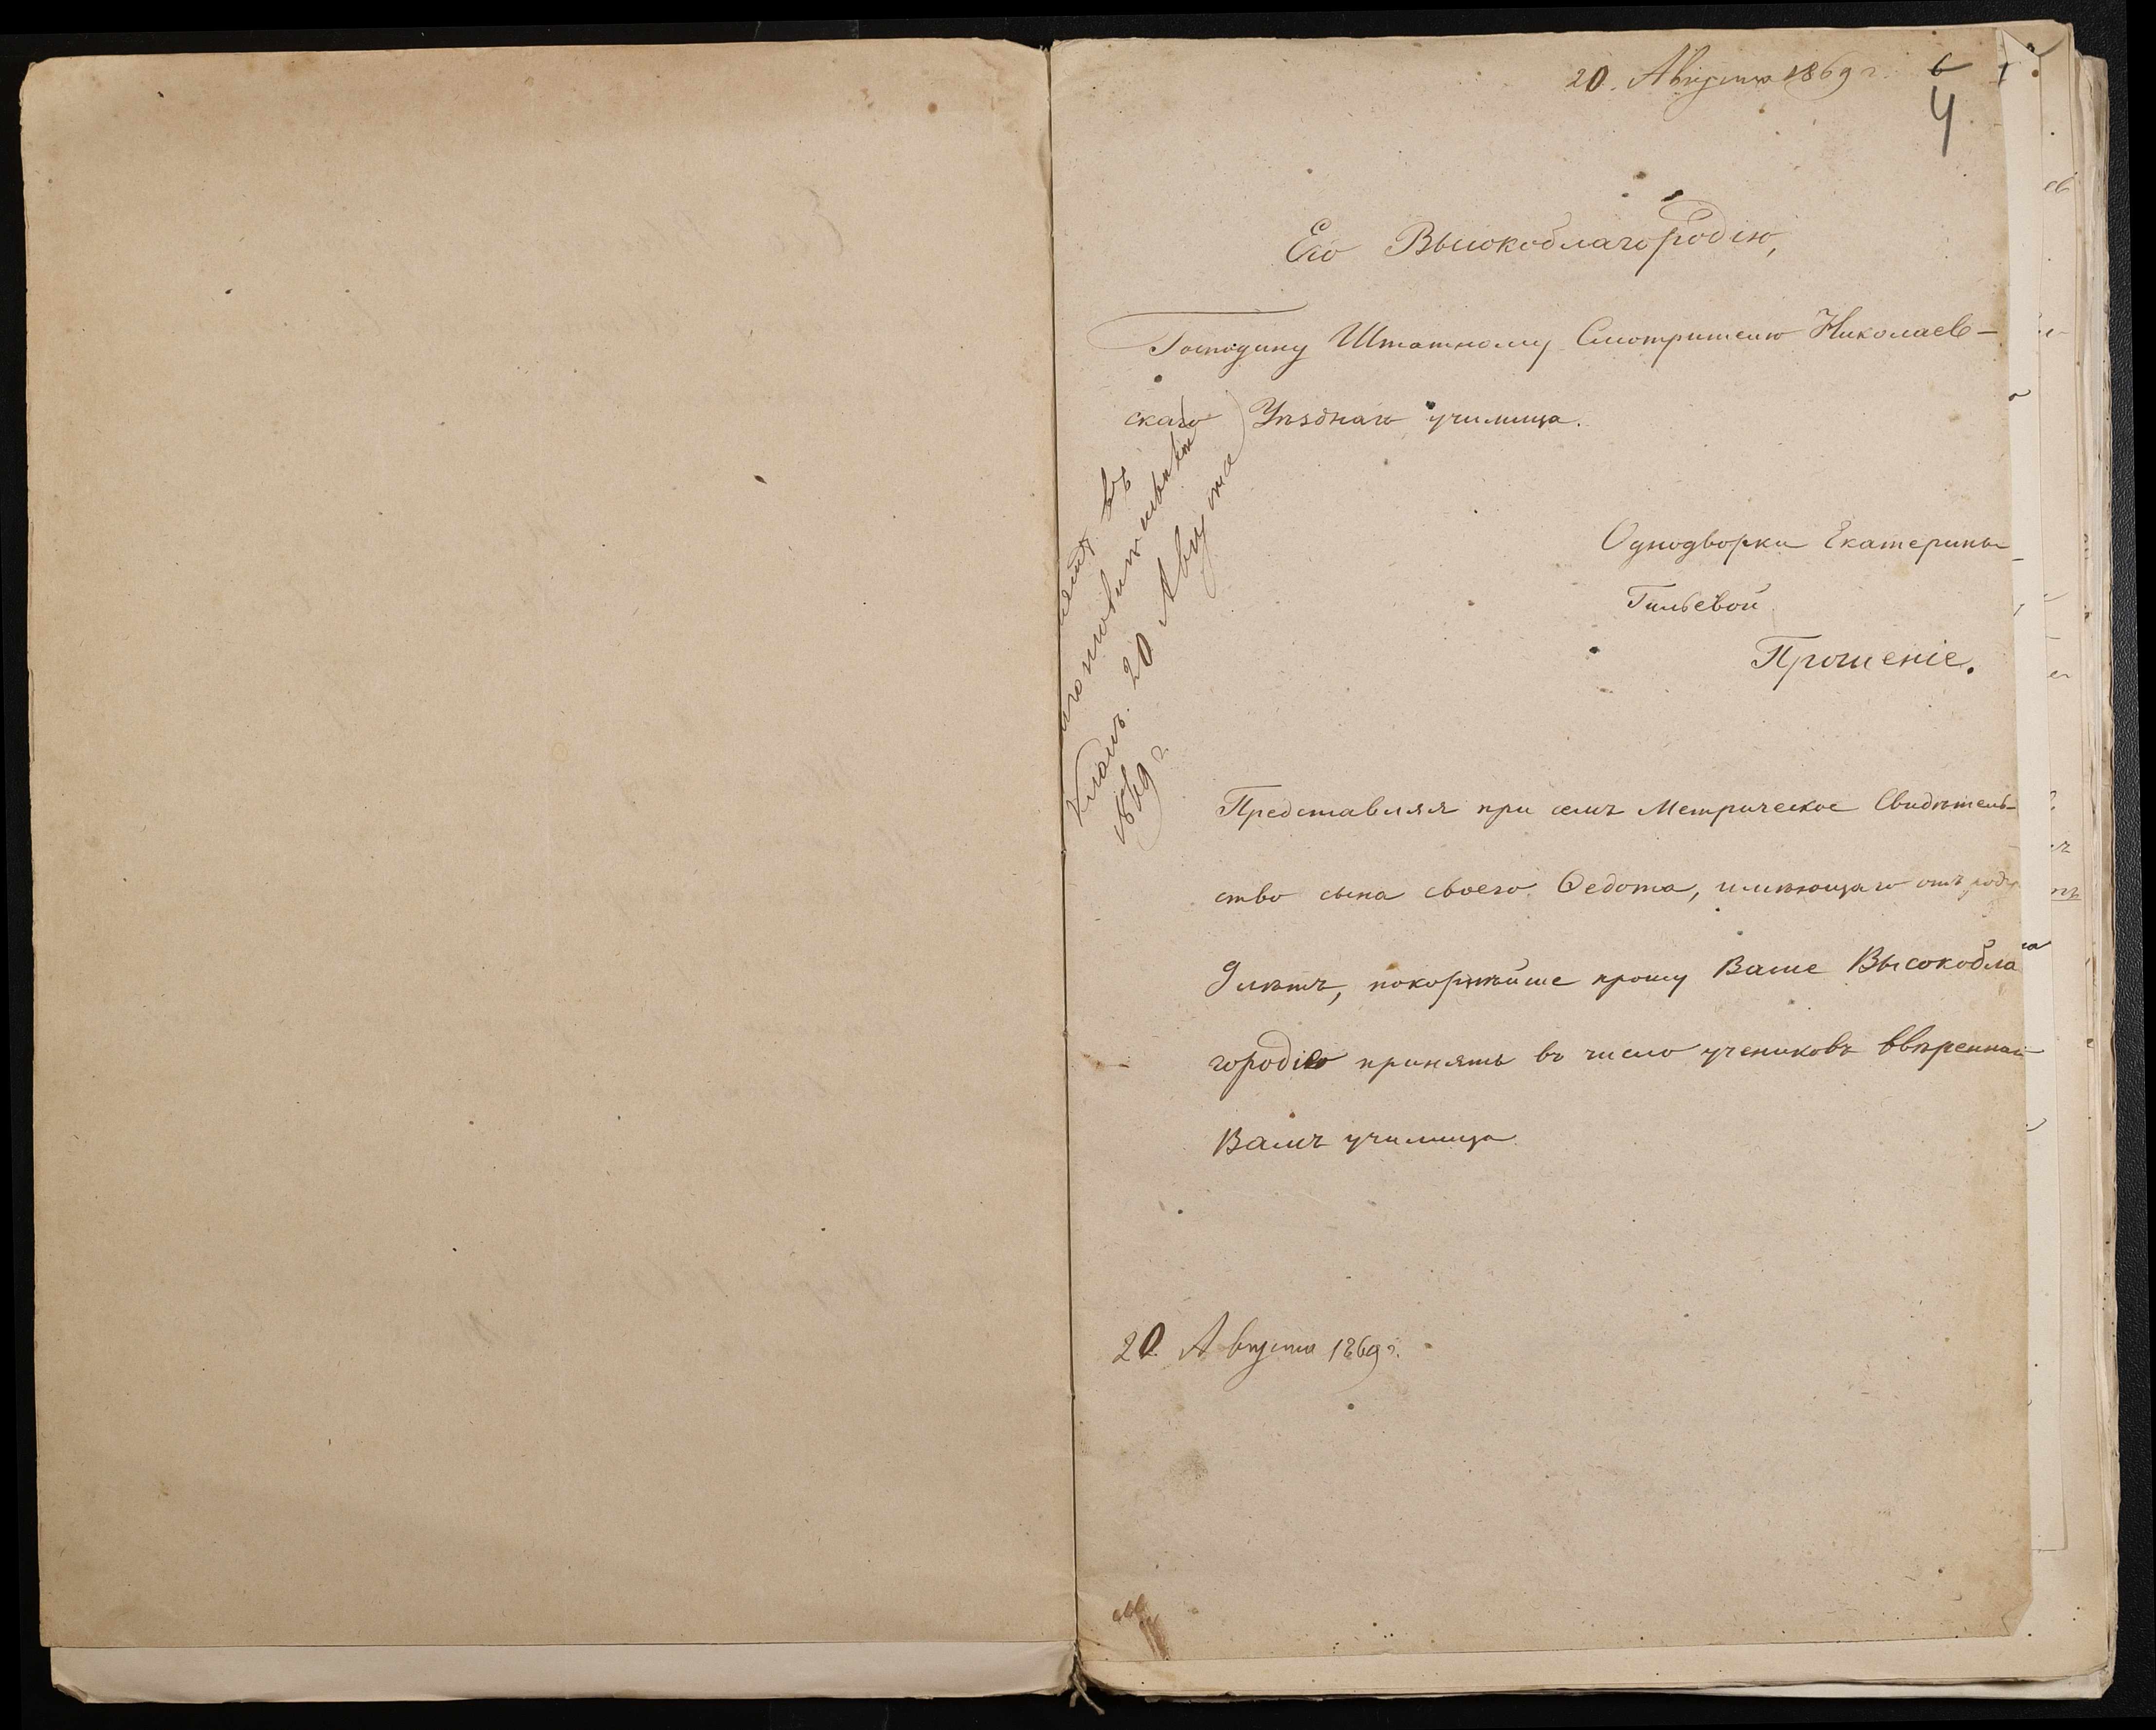 20. Августа 1869 г.
6
4
Его Высокоблагородію,
Господину Штатному Смотрителю Николаев-
скаго Уѣзднаго училища.
въ
приготовительный
Классъ. 20 Августа
1869 г.
Однодворки Екатерины
Гильевой
Прошеніе.
Представляя при семъ Метрическое Свидѣтель-
ство сына своего Ѳедота, имѣющаго отъ роду
9 лѣтъ, покорнѣйше прошу Ваше Высокобла
городіе принять въ число учениковъ ввѣреннаго
Вамъ училища
20 Августа 1869 г.